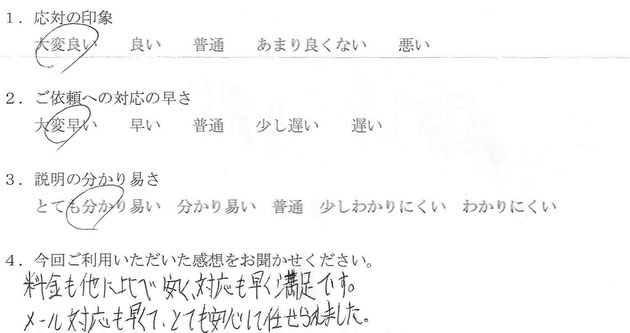 １．応対の印象
大変良い　良い　普通　あまり良くない　悪い
２．ご依頼への対応の早さ
大変早い　早い　普通　少し遅い　遅い
３．説明の分かり易さ
とても分かり易い　分かり易い　普通　少しわかりにくい　わかりにくい
４．今回ご利用いただいた感想をお聞かせください。
料金も他に比べ安く、対応も早く満足です。
メール対応も早くて、とても安心して任せられました。